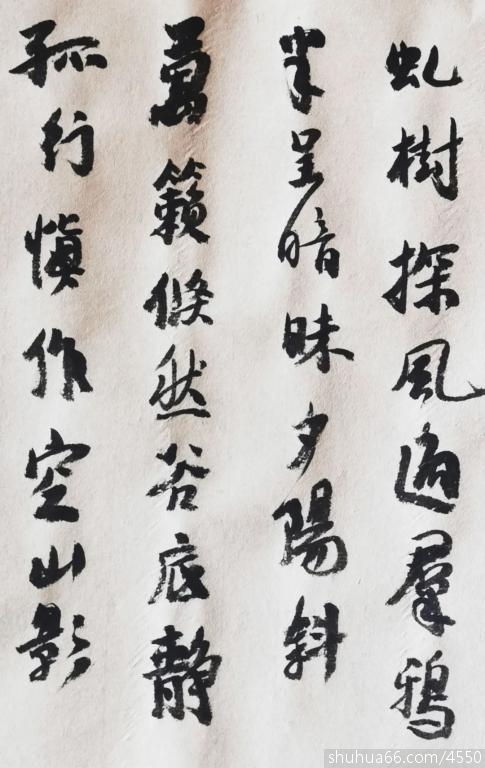 虬樹探風過羣鴉
半呈暗昧夕陽斜
萬籟倏然谷底静
孤行慎作空山影
shuhua66.com/4550